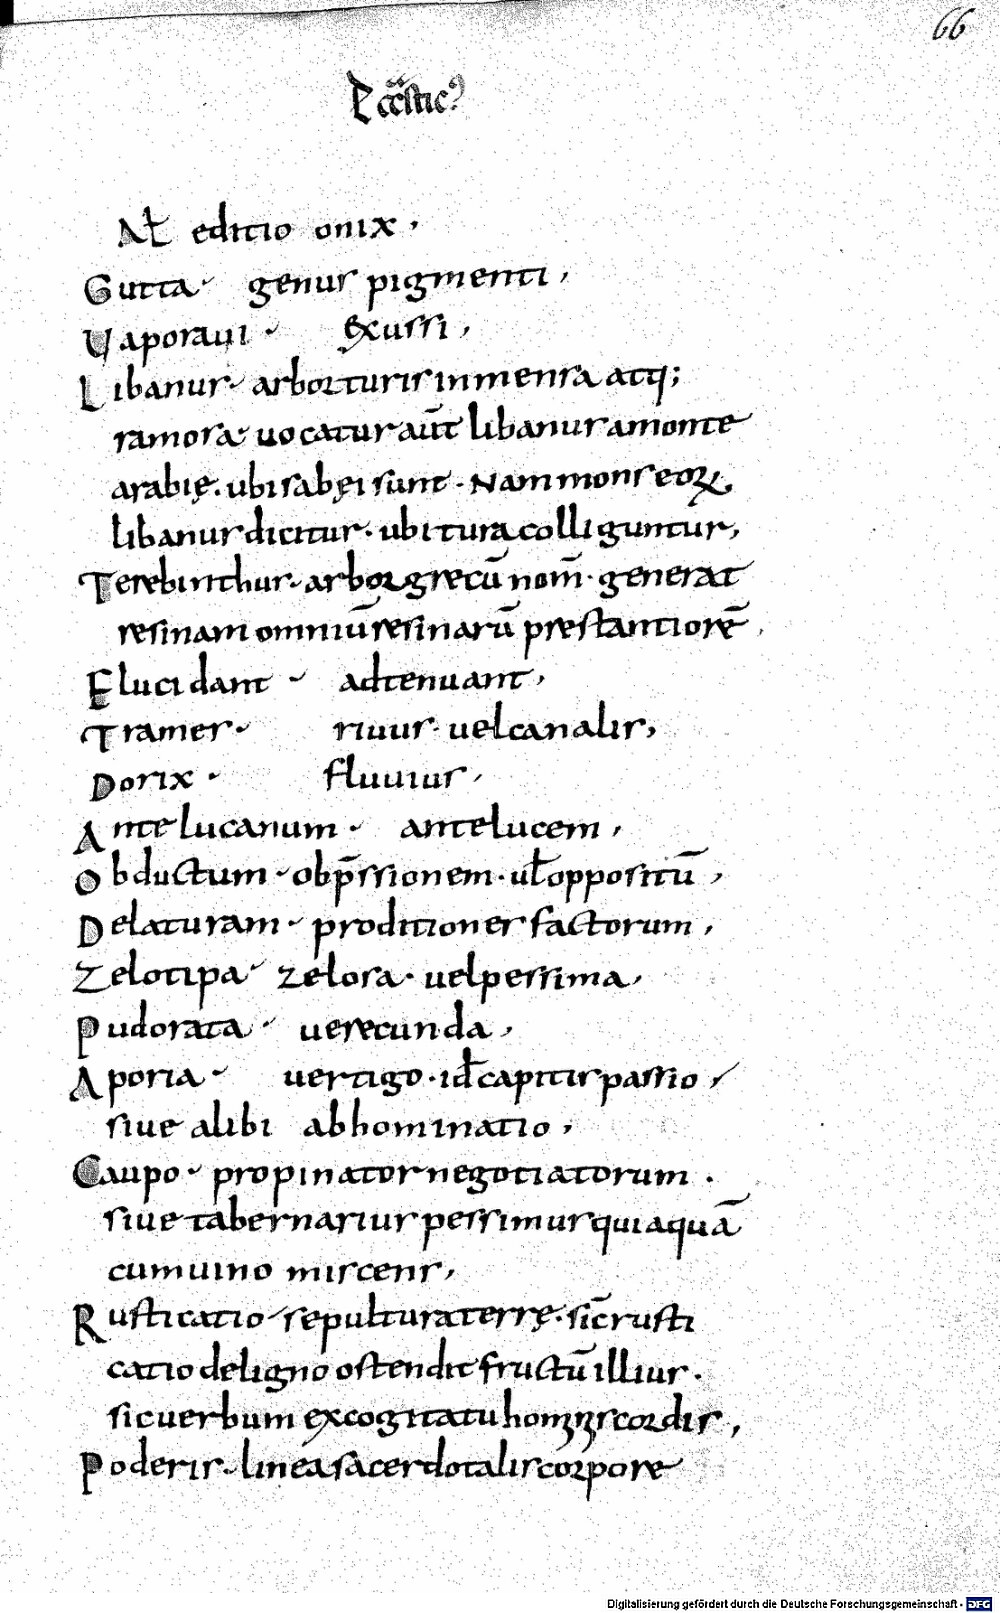 66
Eccl̅astic9
Al̅ editio onix,
Gutta· genus pigmenti,
Uaporaui· exussi,
Libanus· arbor turis inmensa atq;
ramosa· uocatur aut̅ libanus amonte
arabię. ubi sabęi sunt· Nam mons eoꝝ
libanus dicitur· ubi tura colliguntur,
Terebinthus· arbor grecu̅ nom̅· generat
resinam omniu̅ resinaru̅ prestantiore̅,
Elucidant· adtenuant,
Trames· riuus· uel canalis,
Dorix· fluuius,
Antelucanum· antelucem,
Obductum· obp̅ssionem· ul̅ oppositu̅,
Delaturam· proditiones factorum,
Zelotipa· zelosa· uel pessima,
Pudorata· uerecunda,
Aporia· uertigo· id̅ capitis passio,
siue alibi abhominatio,
Caupo· propinator negotiatorum.
siue tabernarius pessimus qui aqua̅
cum uino miscens,
Rusticatio· sepultura terrę· sic̅ rusti
catio deligno ostendit fructu̅ illius·
sic uerbum excogitatu hom̅s cordis,
Poderis· linea sacerdotalis corpore
Digitalisierung gefördert durch die Deutsche Forschungsgemeinschaft - DFG